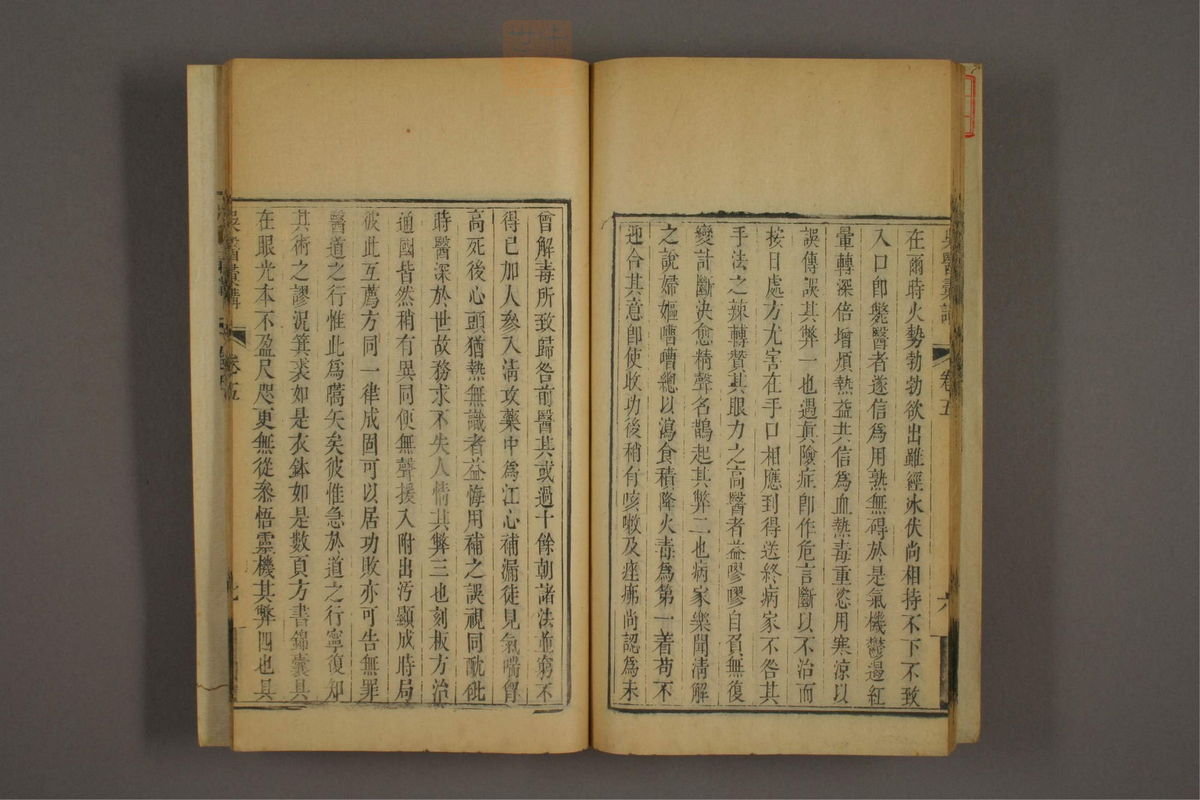 吳醫彙講 卷五 六
在爾時火勢勃勃欲出雖經冰伏尚相持不下不致
入口卽斃醫者遂信爲用熟無碍於是氣機鬱遏紅
暈轉深倍增煩熱益共信爲血熱毒重恣用寒涼以
誤傳誤其弊一也遇眞險症卽作危言斷以不治而
按日處方尤害在手口相應到得送終病家不咎其
手法之辣轉贊其眼力之高醫者益嘐嘐自負無復
變計斷決愈精聲名鵲起其弊二也病家樂聞淸解
之說婦嫗嘈嘈總以瀉食積降火毒爲第一着苟不
迎合其意卽使收功後稍有咳嗽及痤疿尚認爲未
曾解毒所致歸咎前醫其或過十餘朝諸法並窮不
得已加人參入淸攻藥中爲江心補漏徒見氣喘胷
高死後心頭猶熱無識者益悔用補之誤視同酖砒
時醫深於世故務求不失人情其弊三也刻板方治
通國皆然稍有異同便無聲援入附出汚顯成時局
彼此互薦方同一律成固可以居功敗亦可告無罪
醫道之行惟此爲嚆矢矣彼惟急於道之行寧復知
其術之謬況箕裘如是衣鉢如是數頁方書錦囊具
在眼光本不盈尺咫更無從叅悟靈機其弊四也具
吳醫彙講 卷五 七